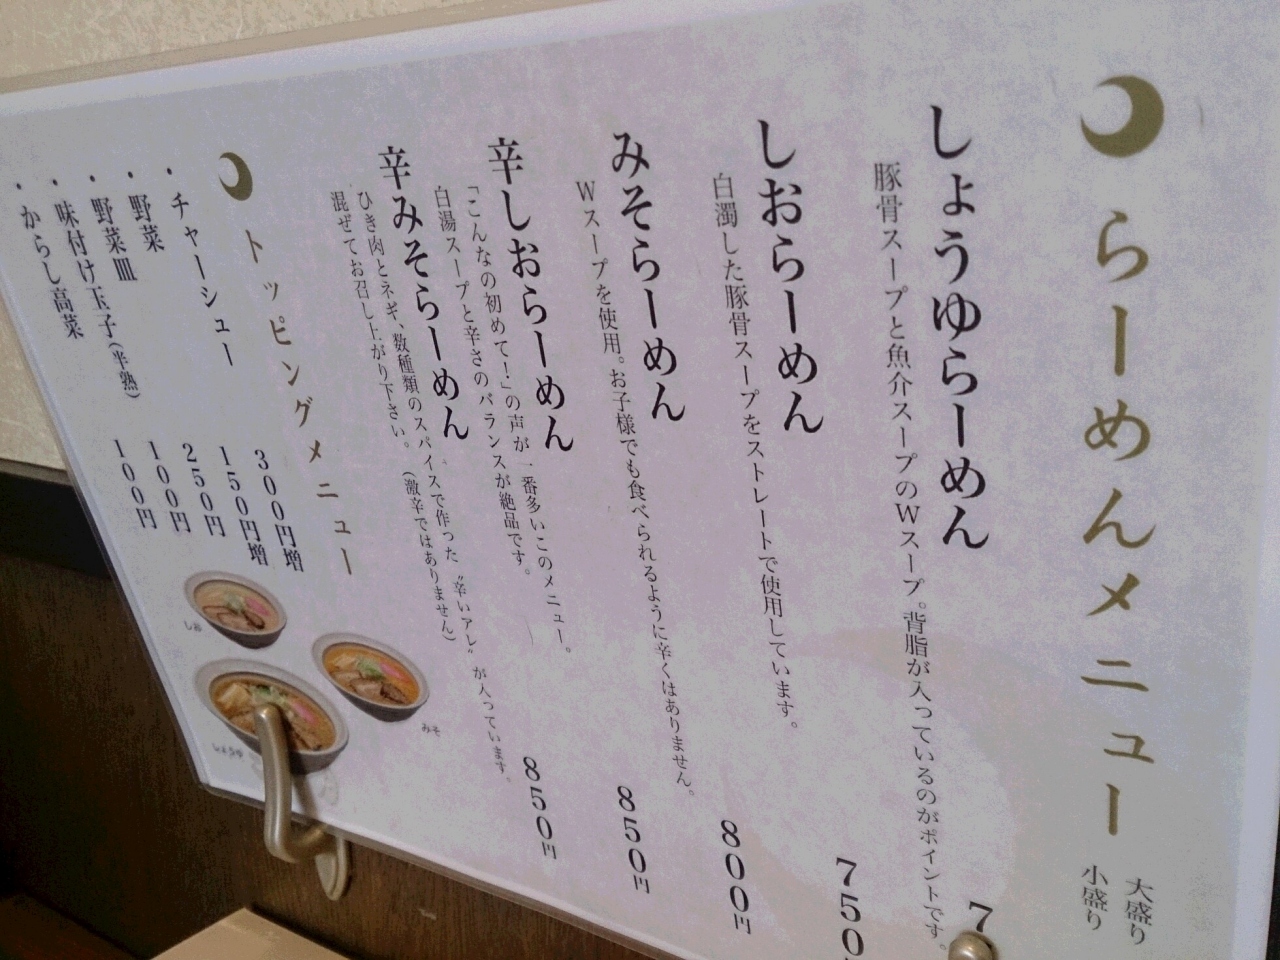 らーめんメニュー
大盛り
小盛り
しょうゆらーめん
7
豚骨スープと魚介スープのWスープ。背脂が入っているのがポイントです。
しおらーめん
750
白濁した豚骨スープをストレートで使用しています。
みそらーめん
800円
Wスープを使用。お子様でも食べられるように辛くはありません。
辛しおらーめん
850円
「こんなの初めて!」の声が一番多いこのメニュー。
白湯スープと辛さのバランスが絶品です。
辛みそらーめん
850円
ひき肉とネギ、数種類のスパイスで作った〝辛いアレ〟が入っています。
混ぜてお召し上がり下さい。(激辛ではありません)
トッピングメニュー
・チャーシュー 300円増
・野菜 150円増
・野菜皿 250円
・味付け玉子(半熟) 100円
・からし高菜 100円
しお
みそ
しょうゆ